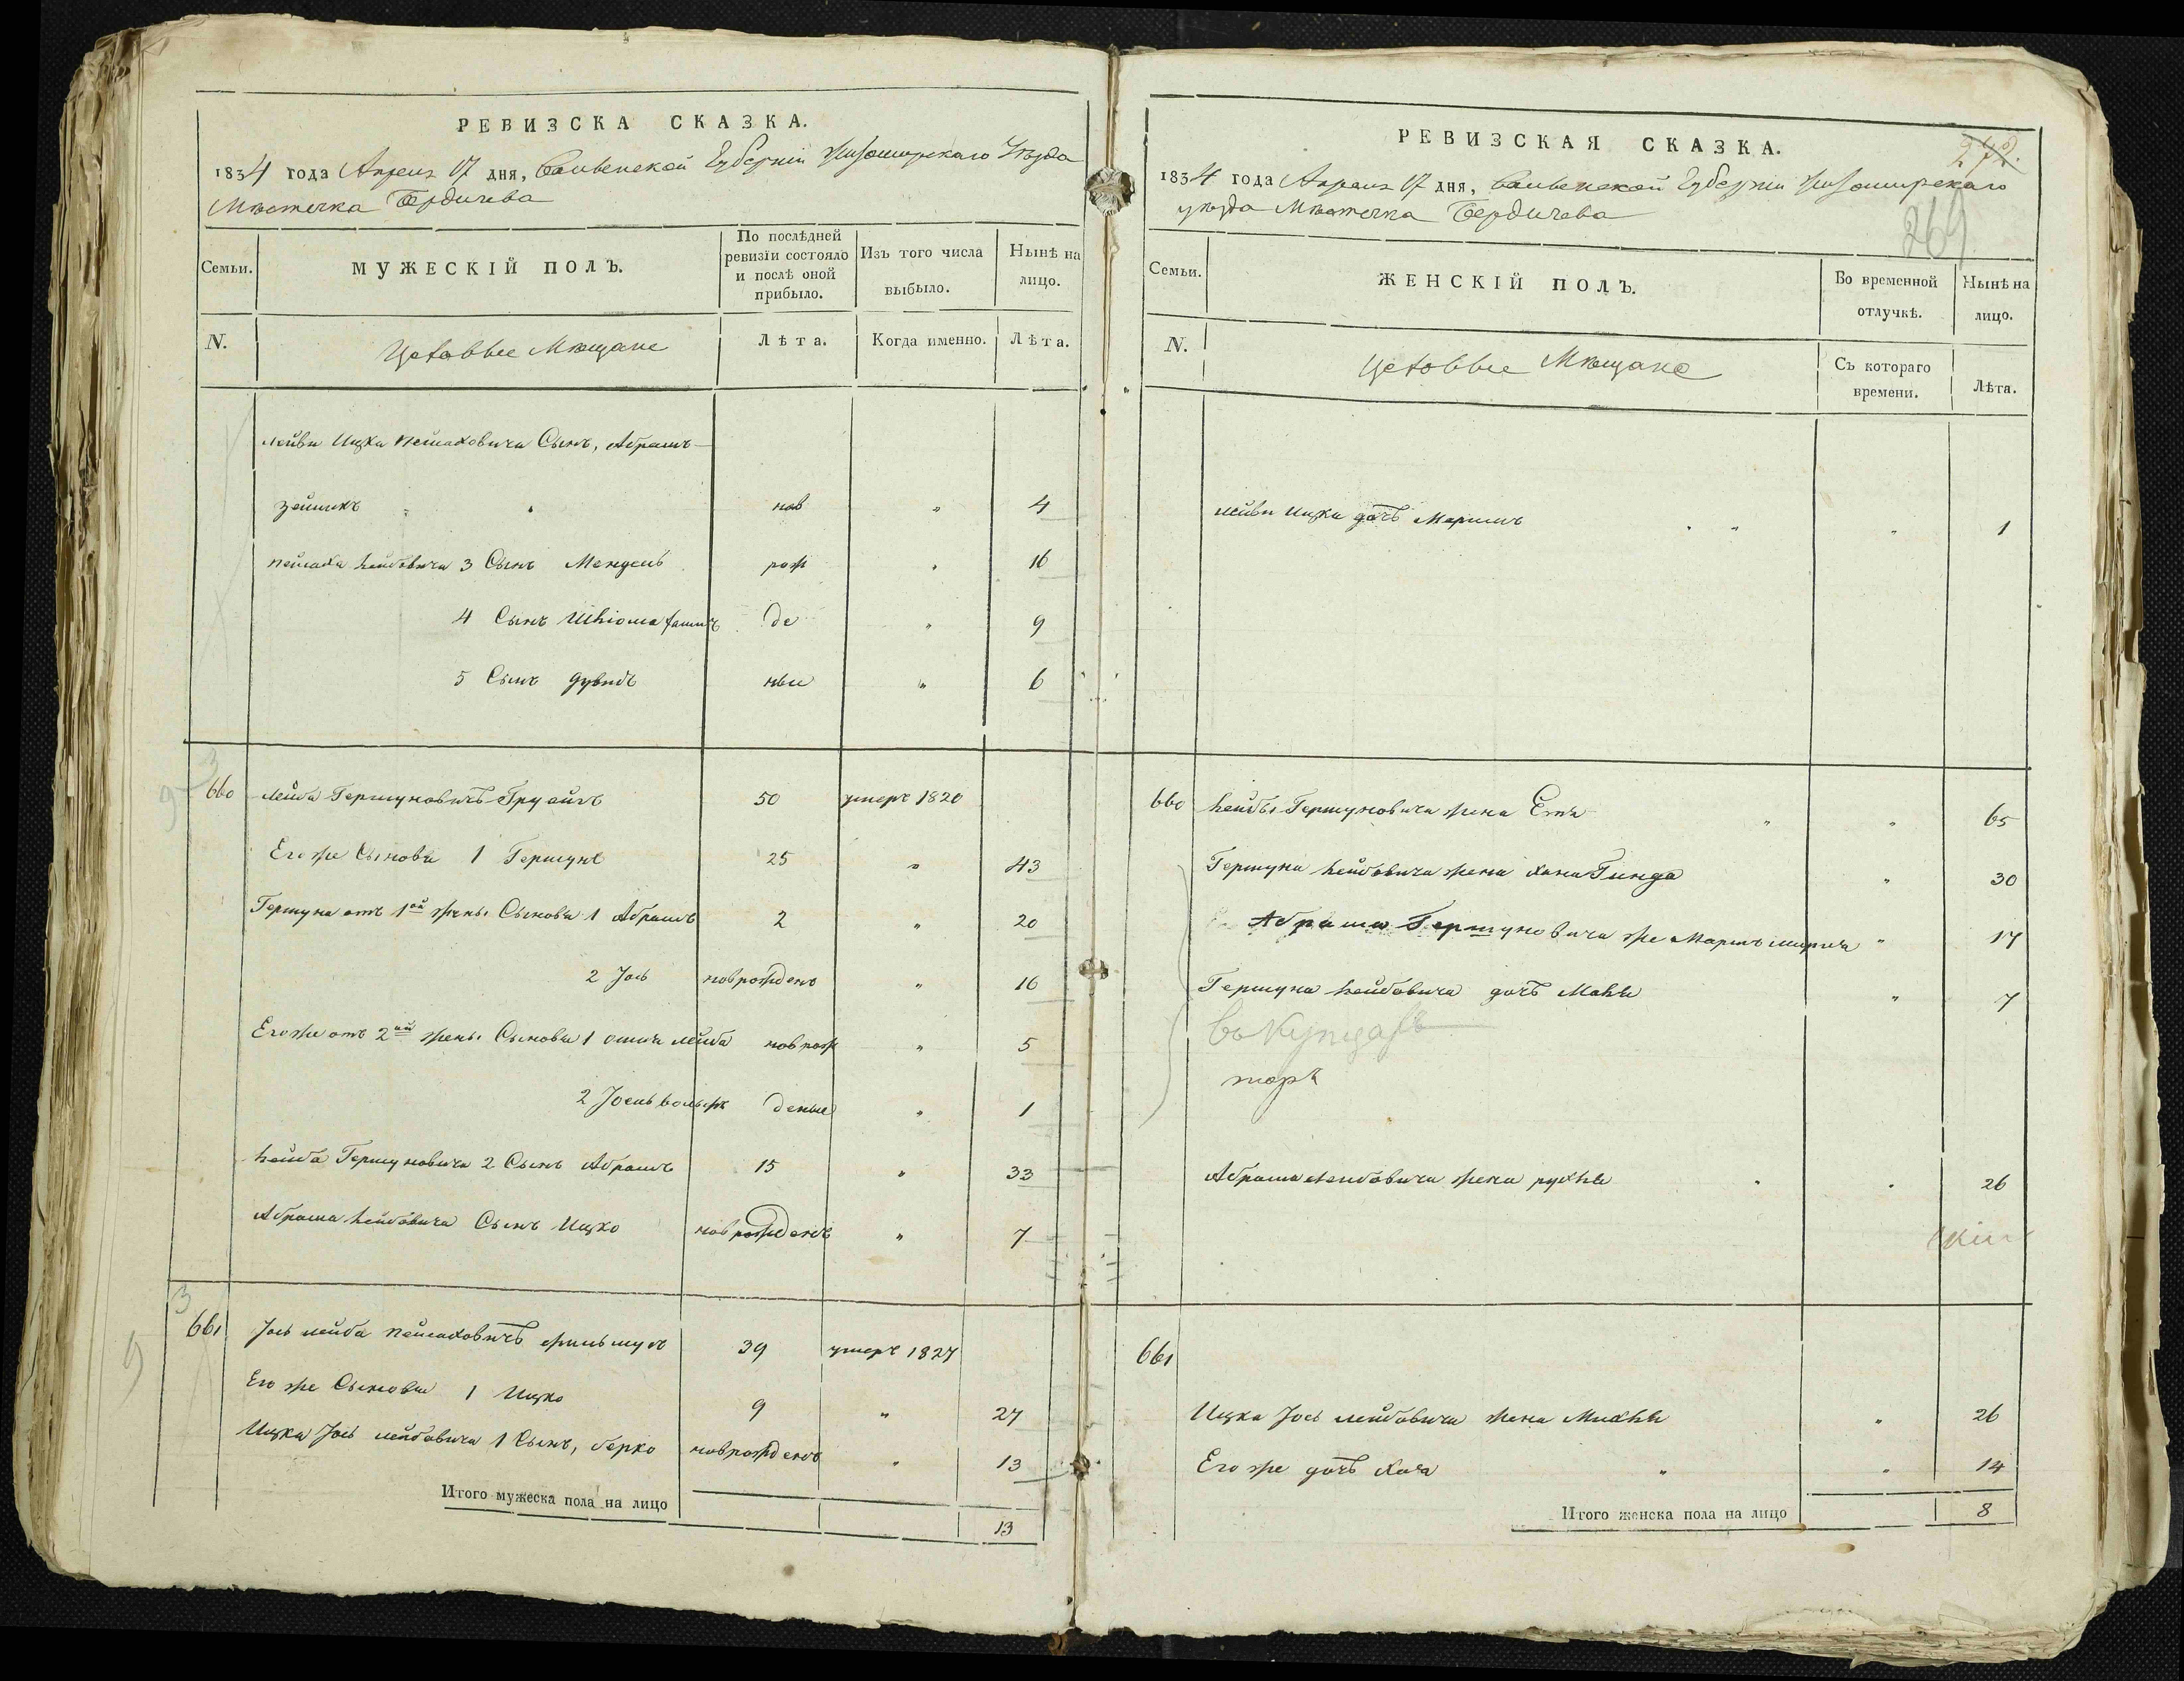 РЕВИЗСКА СКАЗКА.
1834 года Апреля 17 дня, Волынской Губерніи Житомирскаго Уѣзда
Мѣстечка Бердичева
Семьи.
МУЖЕСКІЙ ПОЛЪ.
По послѣдней ревизіи состояло и послѣ оной прибыло.
Изъ того числа выбыло.
Нынѣ на лицо.
N.
Цеховые Мѣщане
Лѣта.
Когда именно.
Лѣта.
Лейви Ицка Пейсаховича Сынъ, Абрамъ
Зейликъ " " нов " 4
Пейсаха Лейбовича 3 Сынъ Мендель рож " 16
4 Сынъ де " 9
5 Сынъ Дувидъ ные " 6
660 Лейба Гершуновичъ 50 умеръ 1820
Его же Сыновья 1 Гершунъ 25 " 43
Гершуна отъ 1ой жены Сыновья 1 Абрамъ 2 " 20
2 Іось новрожденъ " 16
Его же отъ 2ой жены Сыновья 1 Лейба новрож " 5
2 деные " 1
Лейба Гершуновича 2 Сынъ Абрамъ 15 " 33
Абрама Лейбовича Сынъ Ицко новрожденъ " 7
3
661 Іось Лейба Пейсаховичъ 39 умеръ 1827
Его же Сыновья 1 Ицко 9 " 27
Ицка Іось Лейбовича 1 Сынъ, Берко новрожденъ " 13
Итого мужеска пола на лицо 13
РЕВИЗСКАЯ СКАЗКА.
272.
1834 года Апреля 17 дня, Волынской Губерніи Житомирскаго
уѣзда Мѣстечка Бердичева
269
Семьи.
ЖЕНСКІЙ ПОЛЪ.
Во временной отлучкѣ.
Нынѣ на лицо.
N.
Цеховые Мѣщане
Съ котораго времени.
Лѣта.
Лейви Ицка дочь " " " 1
660 Лейбы Гершуновича жена " " 65
Гершуна Лейбовича жена Хана Гинда " 30
Абрама Гершуновича же " 17
Гершуна Лейбовича дочь " 7
въ Купцахъ
Абрама Лейбовича жена " " 26
661
Ицка Іось Лейбовича жена " 26
Его же дочь Хая " " 14
Итого женска пола на лицо 8